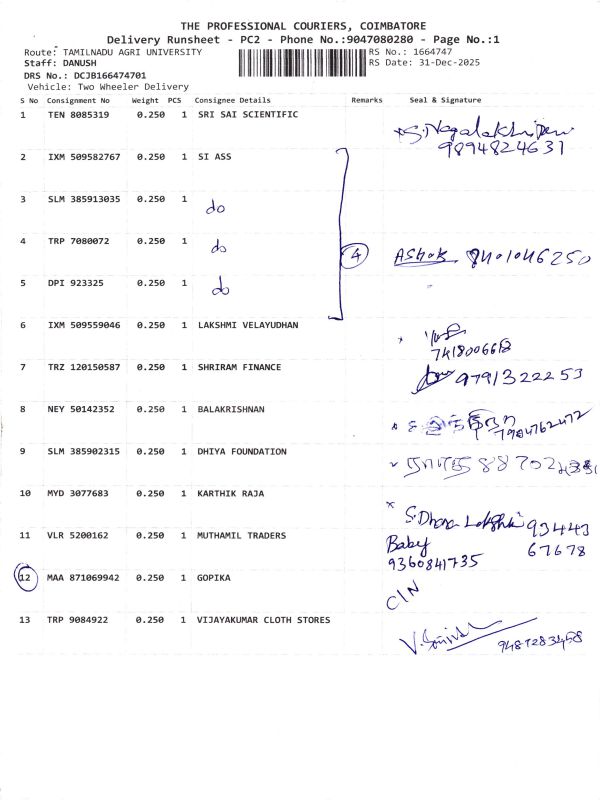 THE PROFESSIONAL COURIERS, COIMBATORE
Delivery Runsheet - PC2 - Phone No.:9047080280 - Page No.:1
Route: TAMILNADU AGRI UNIVERSITY RS No.: 1664747
Staff: DANUSH RS Date: 31-Dec-2025
DRS No.: DCJB166474701
Vehicle: Two Wheeler Delivery
S No Consignment No Weight PCS Consignee Details Remarks Seal & Signature
1 TEN 8085319 0.250 1 SRI SAI SCIENTIFIC
9894824631
2 IXM 509582767 0.250 1 SI ASS
3 SLM 385913035 0.250 1 do
4 TRP 7080072 0.250 1 do 4 ASHOK 8401046250
5 DPI 923325 0.250 1 do
6 IXM 509559046 0.250 1 LAKSHMI VELAYUDHAN
7418006618
7 TRZ 120150587 0.250 1 SHRIRAM FINANCE 9791322253
8 NEY 50142352 0.250 1 BALAKRISHNAN
9 SLM 385902315 0.250 1 DHIYA FOUNDATION
10 MYD 3077683 0.250 1 KARTHIK RAJA
S.Dhana 93443
67678
11 VLR 5200162 0.250 1 MUTHAMIL TRADERS Baby
9360841735
12 MAA 871069942 0.250 1 GOPIKA C/N
13 TRP 9084922 0.250 1 VIJAYAKUMAR CLOTH STORES